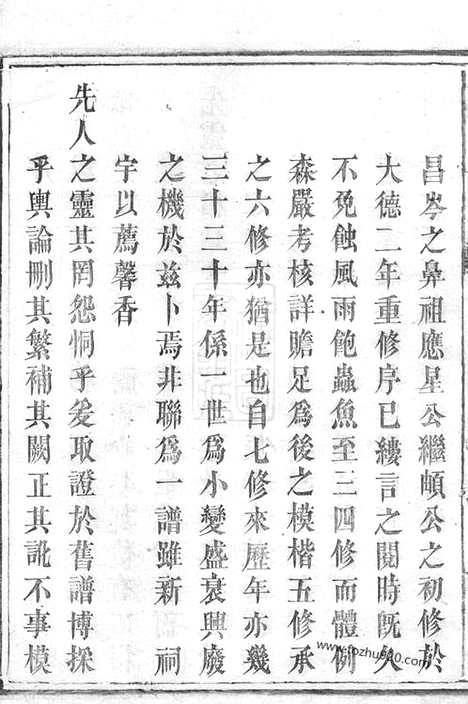 昌岑之鼻祖應星公繼頔公之初修於
大德二年重修序已縷言之閱時旣久
不免蝕風雨飽蟲魚至三四修而體例
森嚴考核詳贍足爲後之模楷五修承
之六修亦猶是也自七修來歷年亦幾
三十三十年係一世爲小變盛衰興廢
之機於兹卜焉非聯爲一譜雖新　祠
宇以薦馨香
先人之靈其罔怨恫乎爰取證於舊譜博採
乎輿論刪其繁補其闕正其訛不事模